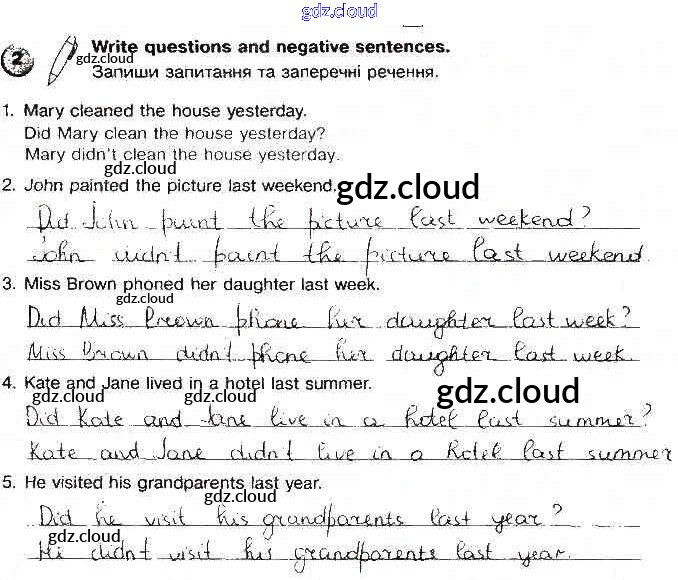 gdz.cloud
2 Write questions and negative sentences.
gdz.cloud
Запиши запитання та заперечні речення.
1. Mary cleaned the house yesterday.
Did Mary clean the house yesterday?
Mary didn't clean the house yesterday.
gdz.cloud
2. John painted the picture last weekend.
gdz.cloud
Did John paint the picture last weekend?
John didn't paint the picture last weekend.
3. Miss Brown phoned her daughter last week.
gdz.cloud
Did Miss Brown phone her daughter last week?
Miss Brown didn't phone her daughter last week.
4. Kate and Jane lived in a hotel last summer.
gdz.cloud gdz.cloud gdz.cloud
Did Kate and Jane live in a hotel last summer?
Kate and Jane didn't live in a hotel last summer
5. He visited his grandparents last year.
gdz.cloud
Did he visit his grandparents last year?
Hi didn't visit his grandparents last year.
gdz.cloud